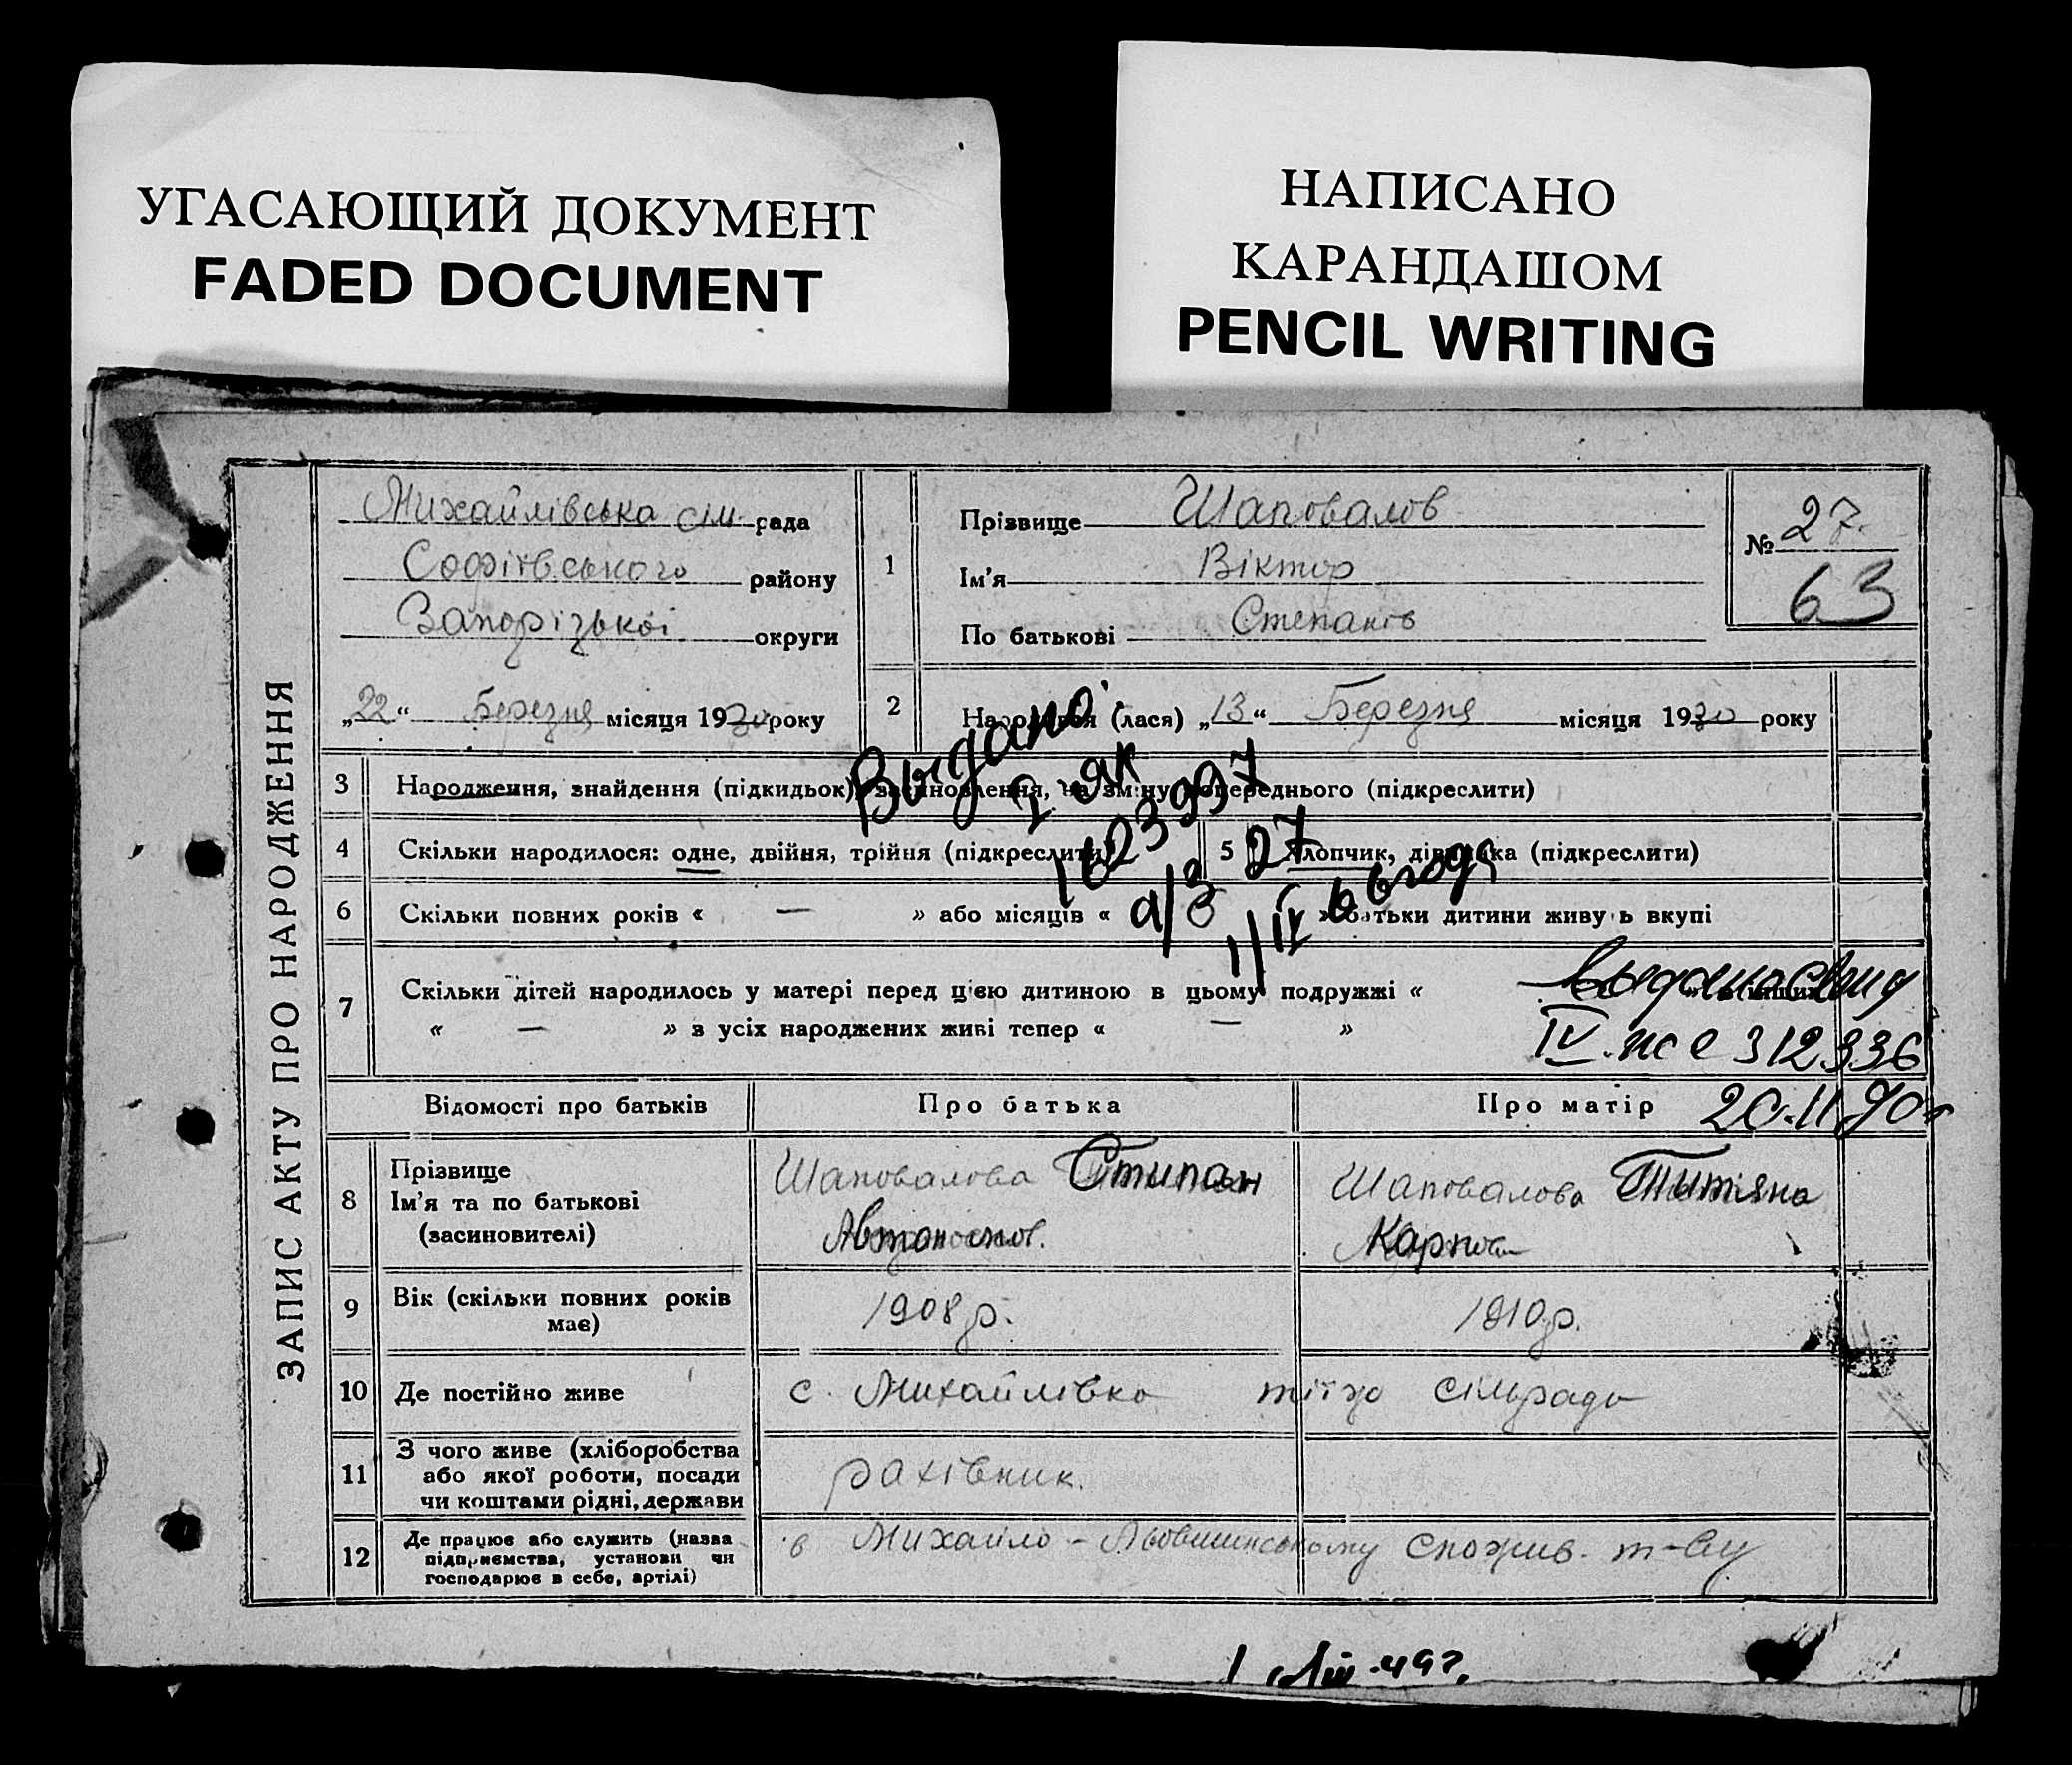 УГАСАЮЩИЙ ДОКУМЕНТ
FADED DOCUMENT
НАПИСАНО
КАРАНДАШОМ
PENCIL WRITING
ЗАПИС АКТУ ПРО НАРОДЖЕННЯ
Михайлівська сіл. рада
Софіївського району
Запорізької округи
„22“ Березня місяця 1930 року
1
Прізвище Шаповалов
Ім'я Віктор
По батькові Степанів
№ 27.
63
2 Народився (лася) „13“ Березня місяця 1930 року
3 Народження, знайдення (підкидьок), засиновлення, на зміну попереднього (підкреслити)
4 Скільки народилося: одне, двійня, трійня (підкреслити)
5 Хлопчик, дівчинка (підкреслити)
6 Скільки повних років « — » або місяців « » батьки дитини живуть вкупі
Выдано
I ЯК
а/з 27
1/IV
7 Скільки дітей народилось у матері перед цією дитиною в цьому подружжі «
« — » з усіх народжених живі тепер « — »
выдано свид
IV. же 312336
20.11.90г
Відомості про батьків
Про батька
Про матір
8 Прізвище
Ім'я та по батькові
(засиновителі)
Шаповалова Стипан
Автоном.
Шаповалова Титяна
Карпов
9 Вік (скільки повних років
має)
1908 р.
1910 р.
10 Де постійно живе
с. Михайлівка тієж сільради
11 З чого живе (хліборобства
або якої роботи, посади
чи коштами рідні, держави
рахівник.
12 Де працює або служить (назва
підприємства, установи чи
господарює в себе, артілі)
в Михайло - спожив. т-ву
1